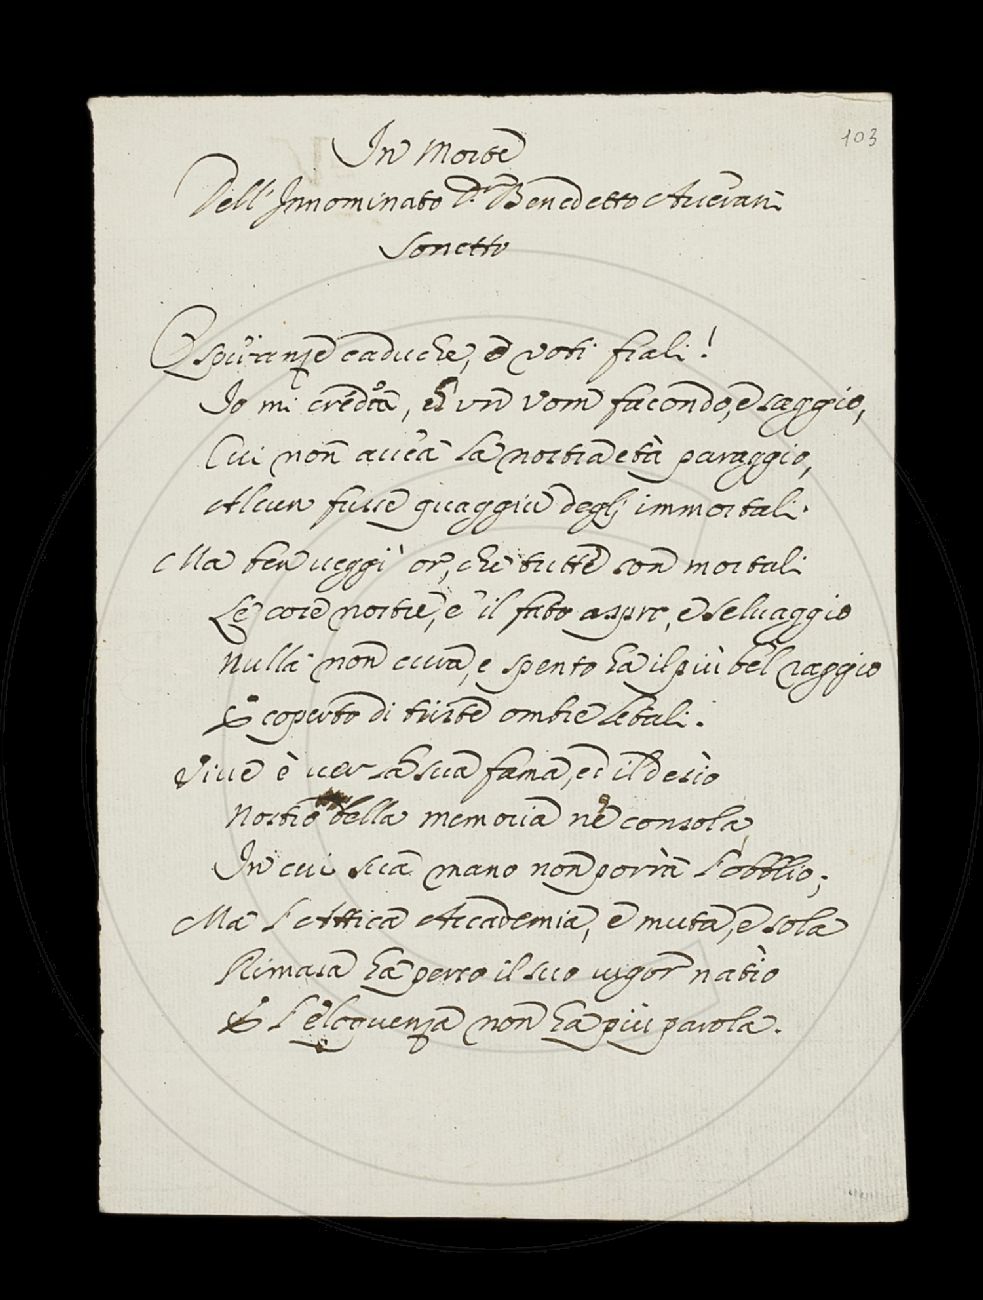 103
In Morte
Dell' Innominato D.r Benedetto Averani
Sonetto
O speranze caduche, e voti frali!
Io mi credea, ch' un vom facondo, e saggio,
Cui non avea la nostra età paraggio,
Alcun fusse quaggiù degl' immortali.
Ma ben veggi' or, che tutte son mortali
Le cose nostre, e il fato aspro, e selvaggio
Nulla non cura, e spento ha il più bel raggio
E coperto di triste ombre letali.
Vive è ver la sua fama, ed il desio
Nostro della memoria ne consola
In cui sua mano non porrà l'obblio;
Ma l'Attica Accademia, e muta, e sola
Rimasa ha perso il suo vigor natio
E l'eloquenza non ha più parola.